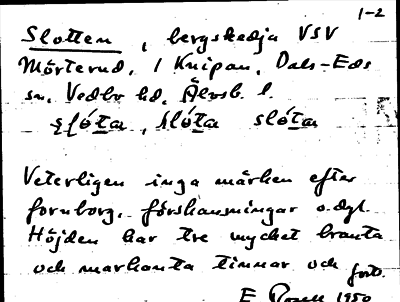 1-2
Slotten, bergskedja VSV
Mörterud, i Knipan, Dals-Eds
sn, Vedbo hd, Älvsb. l.
slóta, slóta slóta
Veterligen inga märken efter
fornborg, förskansningar o.dyl.
Höjden har tre mycket branta
och markanta timnar och
E 1950